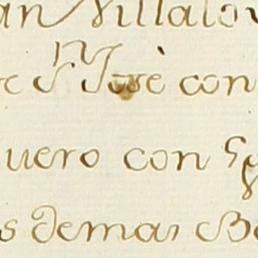 an Villalo
e Sn. José con
uero con
s demas B